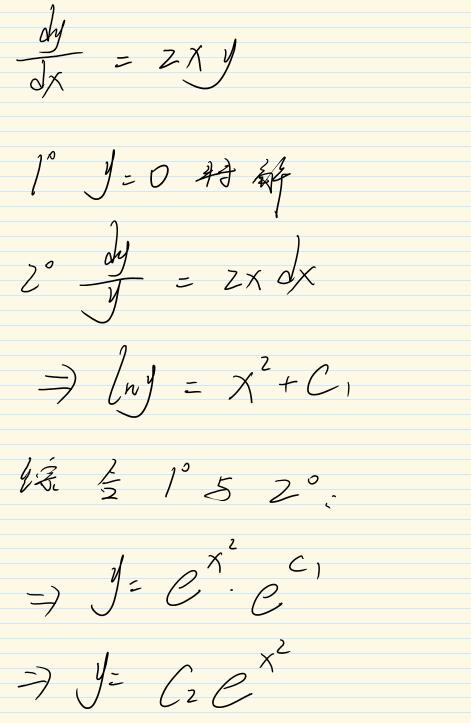 dy/dx = 2xy
1° y=0 特解
2° dy/y = 2x dx
⇒ lny = x² + C₁
综合 1° 与 2°:
⇒ y = e^{x²} · e^{C₁}
⇒ y = C₂ e^{x²}